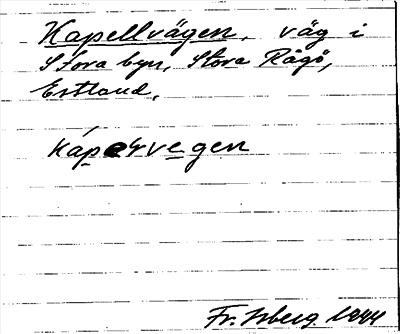 Kapellvägen, väg i
Stora byn, Stora Rågö,
Estland.
kápelvegen
Fr. Isberg 1944